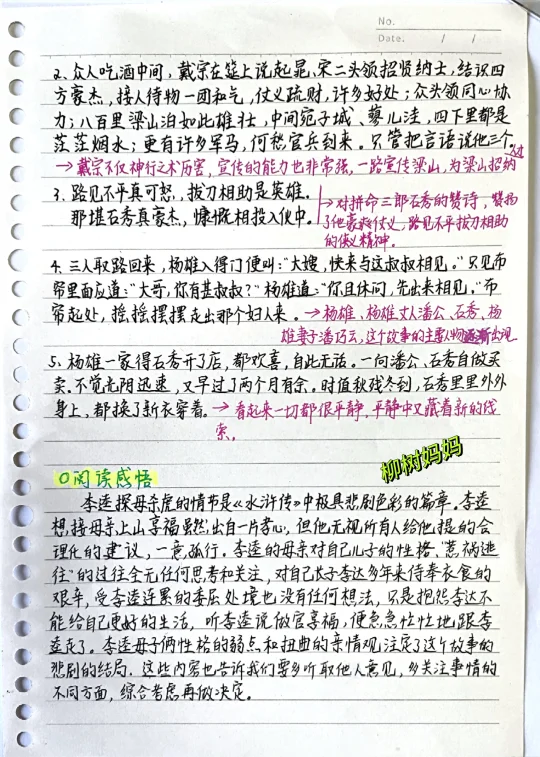 No.
Date. / /
2、众人吃酒中间，戴宗在筵上说起晁、宋二头领招贤纳士，结识四
方豪杰，接人待物一团和气，仗义疏财，许多好处；众头领同心协
力；八百里梁山泊如此雄壮，中间宛子城、蓼儿洼，四下里都是
茫茫烟水；更有许多军马，何愁官兵到来。只管把言语说他三个。
→戴宗不仅神行之术厉害，宣传的能力也非常强，一路宣传梁山，为梁山招纳
3. 路见不平真可怒，拔刀相助是英雄。
那堪石秀真豪杰，慷慨相投入伙中。
→对拼命三郎石秀的赞诗，赞扬
了他豪爽仗义，路见不平拔刀相助
的侠义精神。
4. 三人取路回来，杨雄入得门便叫："大嫂，快来与这叔叔相见。"只见布
帘里面应道："大哥，你有甚叔叔？"杨雄道："你且休问，先出来相见。"布
帘起处，摇摇摆摆走出那个妇人来。→杨雄、杨雄丈人潘公、石秀、杨
雄妻子潘巧云，这个故事的主要人物逐渐出现
5. 杨雄一家得石秀开了店，都欢喜，自此无话。一向潘公、石秀自做买
卖。不觉光阴迅速，又早过了两个月有余。时值秋残冬到，石秀里里外外
身上，都换了新衣穿着。→看起来一切都很平静，平静中又藏着新的线
索。
柳树妈妈
○阅读感悟
李逵探母杀虎的情节是《水浒传》中极具悲剧色彩的篇章。李逵
想接母亲上山享福虽然出自一片孝心，但他无视所有人给他提的合
理化的建议，一意孤行。李逵的母亲对自己儿子的性格、"惹祸逃
往"的过往全无任何思考和关注，对自己大子李达多年来侍奉衣食的
艰辛，受李逵连累的委屈处境也没有任何想法，只是抱怨李达不
能给自己更好的生活，听李逵说做官享福，便急急忙忙地跟李
逵走了。李逵母子俩性格的弱点和扭曲的亲情观，注定了这个故事的
悲剧的结局。这些内容也告诉我们要多听取他人意见，多关注事情的
不同方面，综合考虑再做决定。